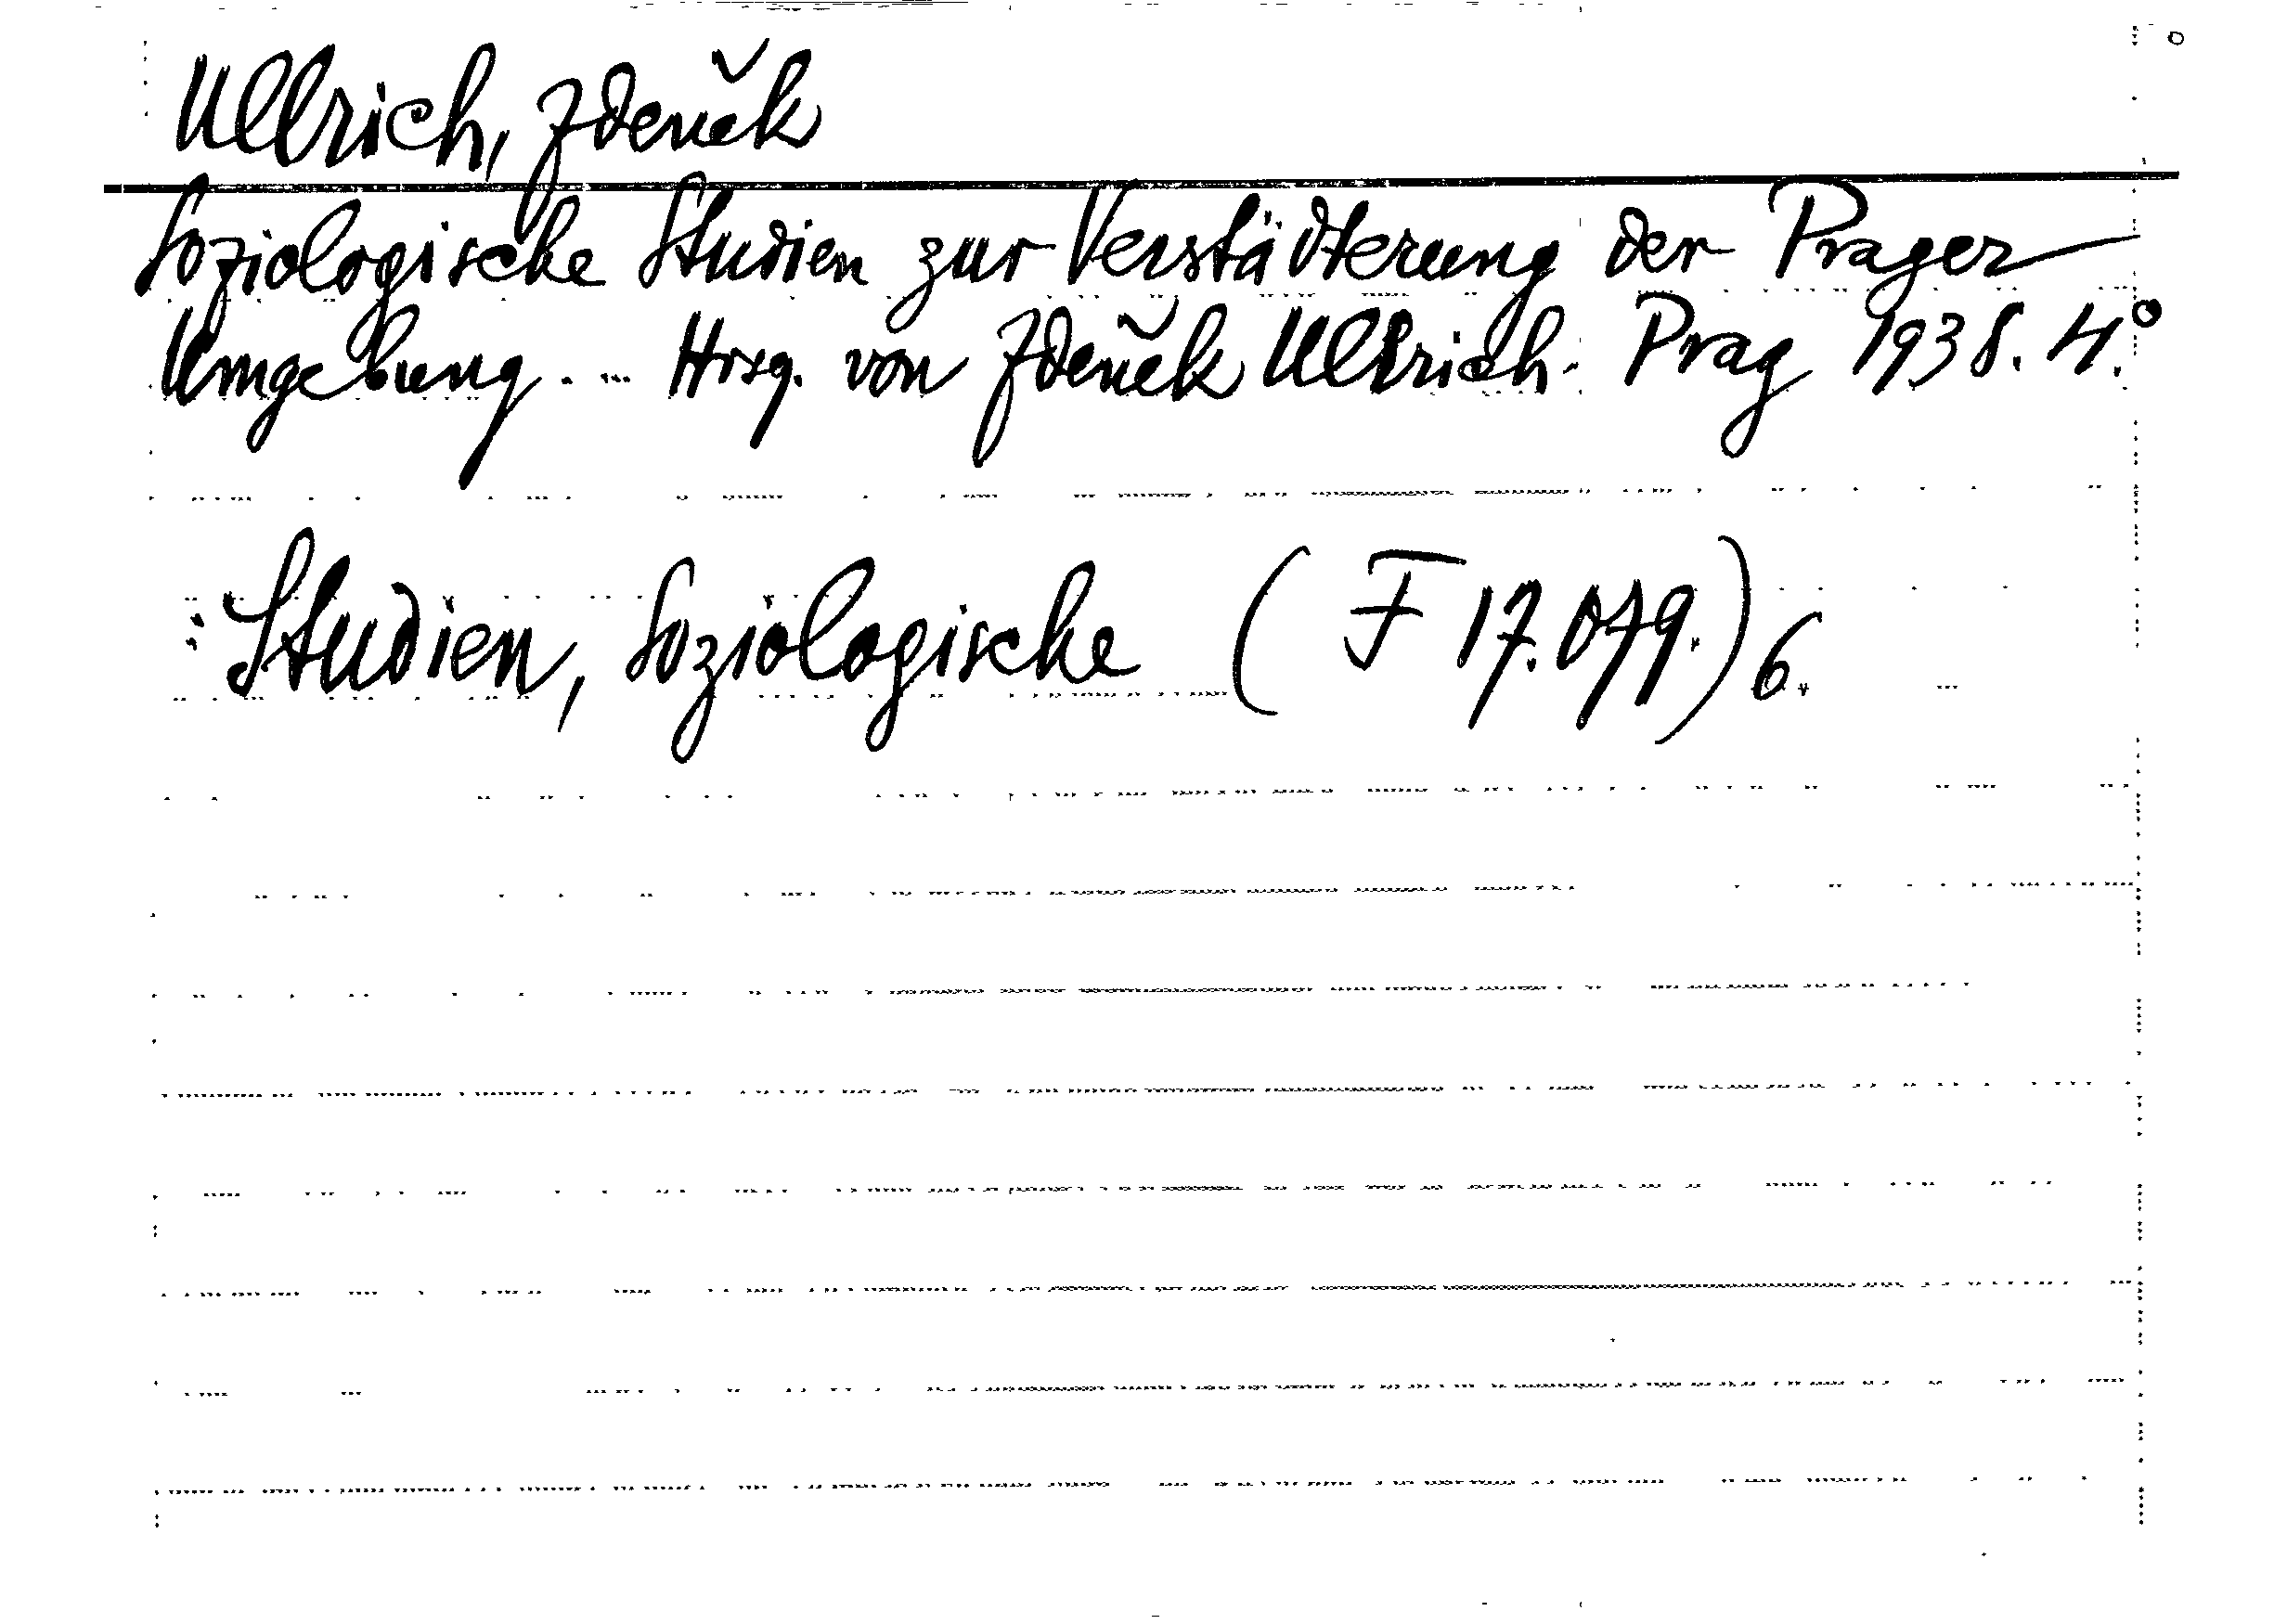 Ullrich, Zdeněk
Soziologische Studien zur Verstädterung der Prager
Umgebung. ... Hrsg. von Zdeněk Ullrich. Prag 1938. 4.°
: Studien, Soziologische (F 17.079.) 6.